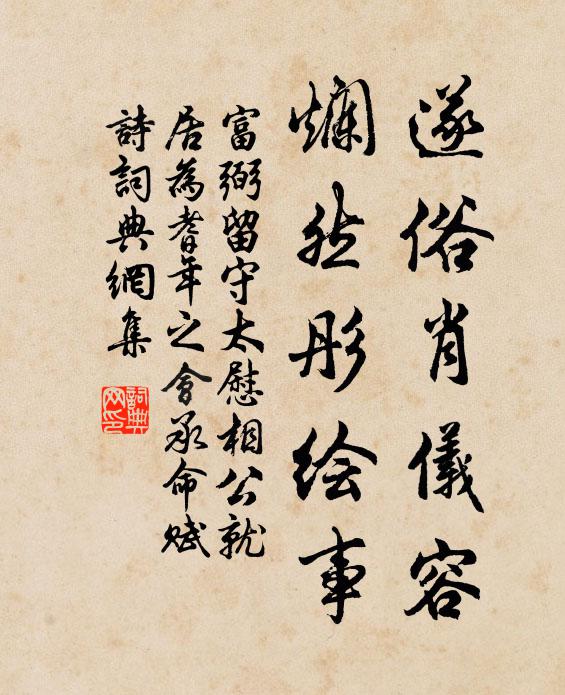 遂俗肖儀容
爛然彤绘事
富弼留守太慰相公就
居為耆年之會承命赋
詩詞典網集
詞典
网印